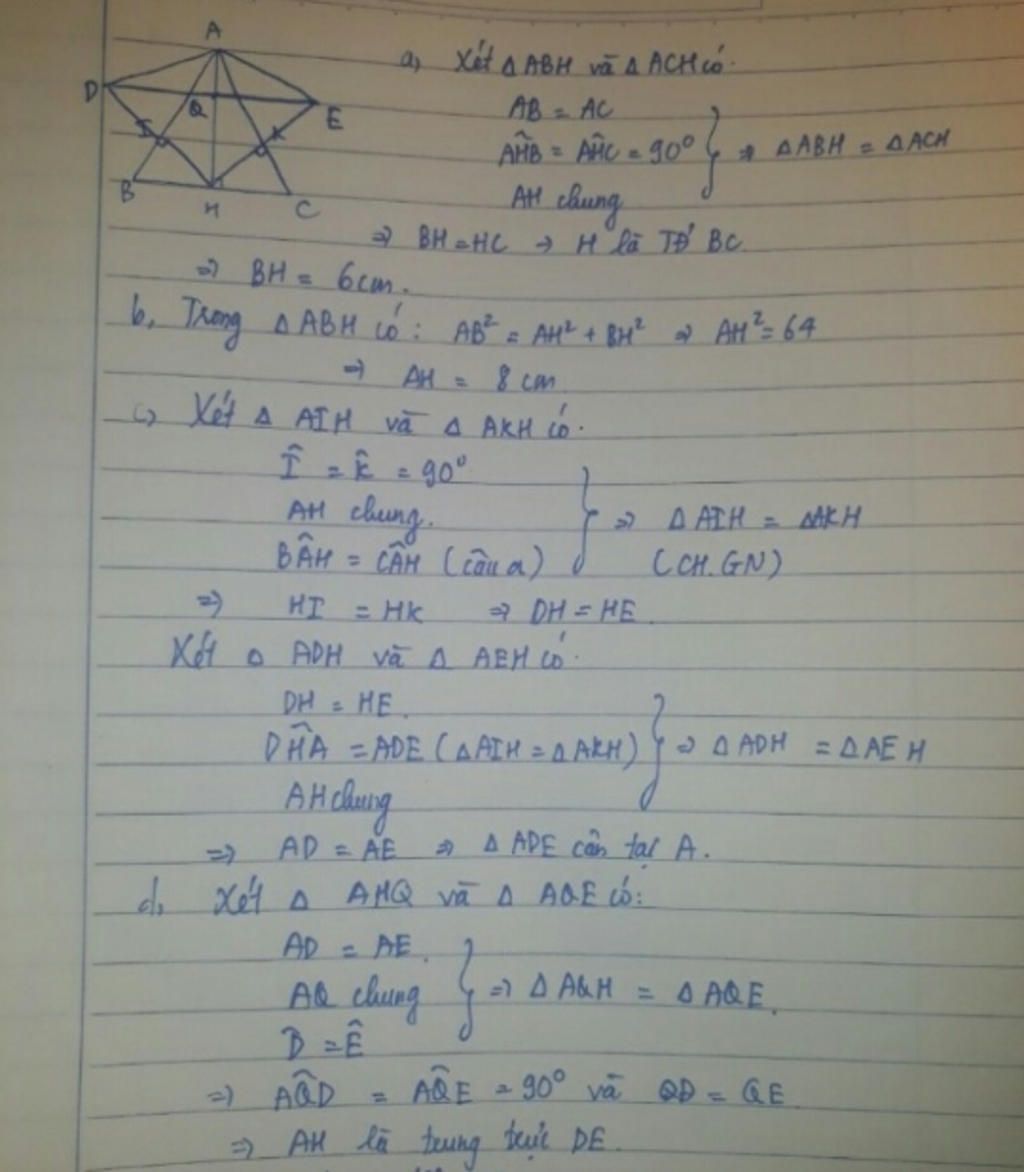 A
D
Q
E
I
K
B
H
C
a, Xét △ABH và △ACH có:
AB = AC
AĤB = AĤC = 90° } ⇒ △ABH = △ACH
AH chung
⇒ BH = HC → H là TĐ BC
⇒ BH = 6cm.
b, Trong △ABH có: AB² = AH² + BH² ⇒ AH² = 64
⇒ AH = 8 cm
c, Xét △ AIH và △ AKH có:
Î = K̂ = 90°
AH chung. } ⇒ △AIH = △AKH
BÂH = CÂH (câu a) (CH.GN)
⇒ HI = HK ⇒ DH = HE
Xét △ ADH và △ AEH có:
DH = HE.
DĤA = ADE (△AIH = △AKH) } ⇒ △ADH = △AEH
AH chung
⇒ AD = AE ⇒ △ADE cân tại A.
d, Xét △ AHQ và △ AQE có:
AD = AE.
AQ chung } ⇒ △AQH = △AQE.
D = Ê
⇒ AQ̂D = AQ̂E = 90° và QD = QE
⇒ AH là trung trực DE.